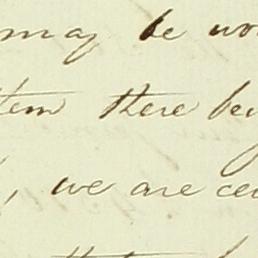 may be wor
tem there bei
, we are cer